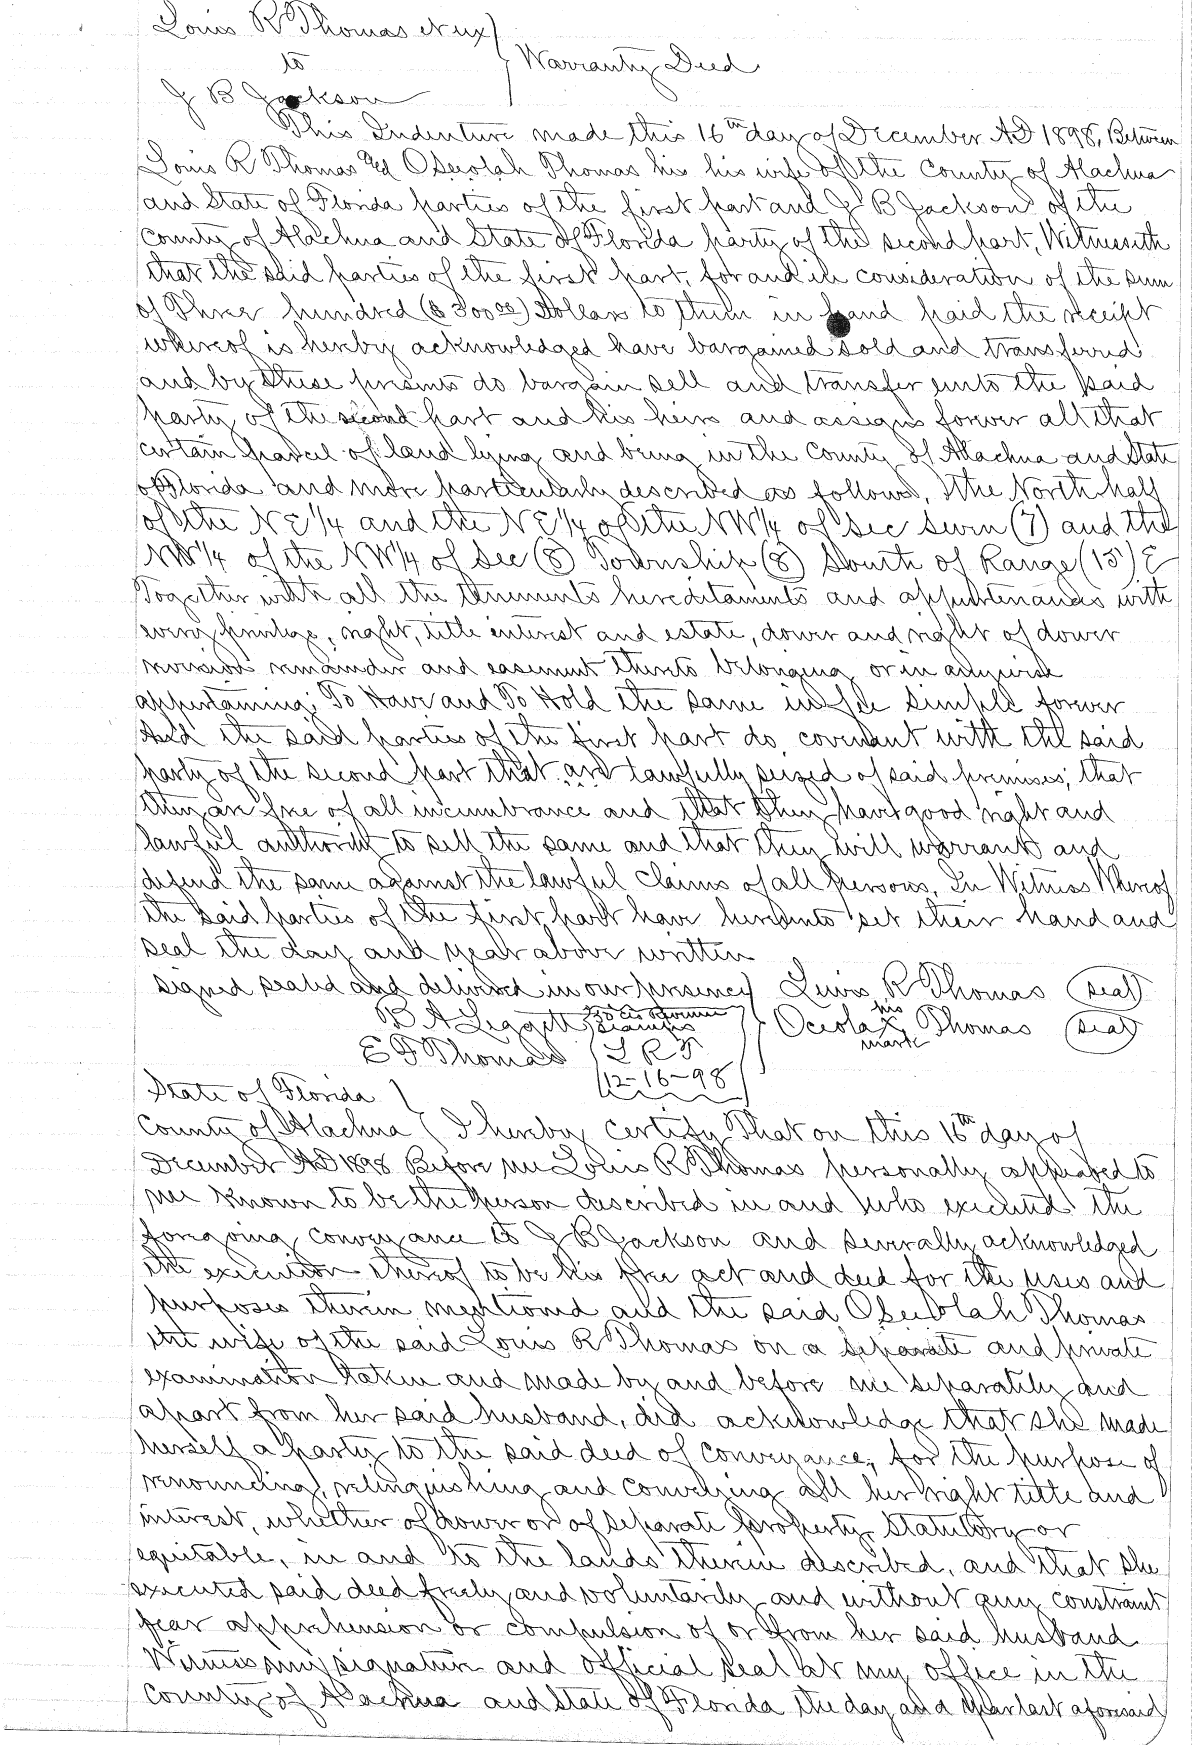 Louis R Thomas et ux
to
Warranty Deed
J B Jackson
This Indenture made this 16th day of December AD 1898, Between
Louis R Thomas and Oseolah Thomas his his wife of the County of Alachua
and State of Florida parties of the first part and J B Jackson of the
County of Alachua and State of Florida party of the second part, Witnesseth
that the said parties of the first part, for and in consideration of the sum
of Three hundred ($300 00) Dollars to them in hand paid the receipt
whereof is hereby acknowledged have bargained sold and transferred
and by these presents do bargain sell and transfer unto the said
party of the second part and his heirs and assigns forever all that
certain parcel of land lying and being in the County of Alachua and State
of Florida and more particularly described as follows, The North half
of the NE 1/4 and the NE 1/4 of the NW 1/4 of Sec seven (7) and the
NW 1/4 of the NW 1/4 of Sec (8) Township (8) South of Range (15) E
Together with all the tenements hereditaments and appurtenances with
every privilege, right, title interest and estate, dower and right of dower
reversion remainder and easement thereto belonging or in anywise
appertaining; To Have and To Hold the same in fee simple forever
And the said parties of the first part do covenant with the said
party of the second part that are lawfully seized of said premises, that
they are free of all incumbrance and that they have good right and
lawful authority to sell the same and that they will warrant and
defend the same against the lawful claims of all persons, In Witness Whereof
the said parties of the first part have hereunto set their hand and
seal the day and year above written
signed sealed and delivered in our presence Louis R Thomas (seal)
B A Leggett Revenue Stamps his
Oceola x Thomas (seal)
mark
E F Thomas L R T
12-16-98
State of Florida
County of Alachua I hereby certify That on this 16th day of
December AD 1898 Before me Louis R Thomas personally appeared to
me known to be the person described in and who executed the
foregoing conveyance to J B Jackson and severally acknowledged
the execution thereof to be his free act and deed for the uses and
purposes therein mentioned and the said Oseolah Thomas
the wife of the said Louis R Thomas on a separate and private
examination taken and made by and before me separately and
apart from her said husband, did acknowledge that she made
herself a party to the said deed of conveyance, for the purpose of
renouncing, relinquishing and conveying all her right title and
interest, whether of dower or of separate property, statutory or
equitable, in and to the lands therein described, and that she
executed said deed freely and voluntarily and without any constraint
fear apprehension or compulsion of or from her said husband
Witness my signature and official seal at my office in the
County of Alachua and State of Florida the day and year last aforesaid